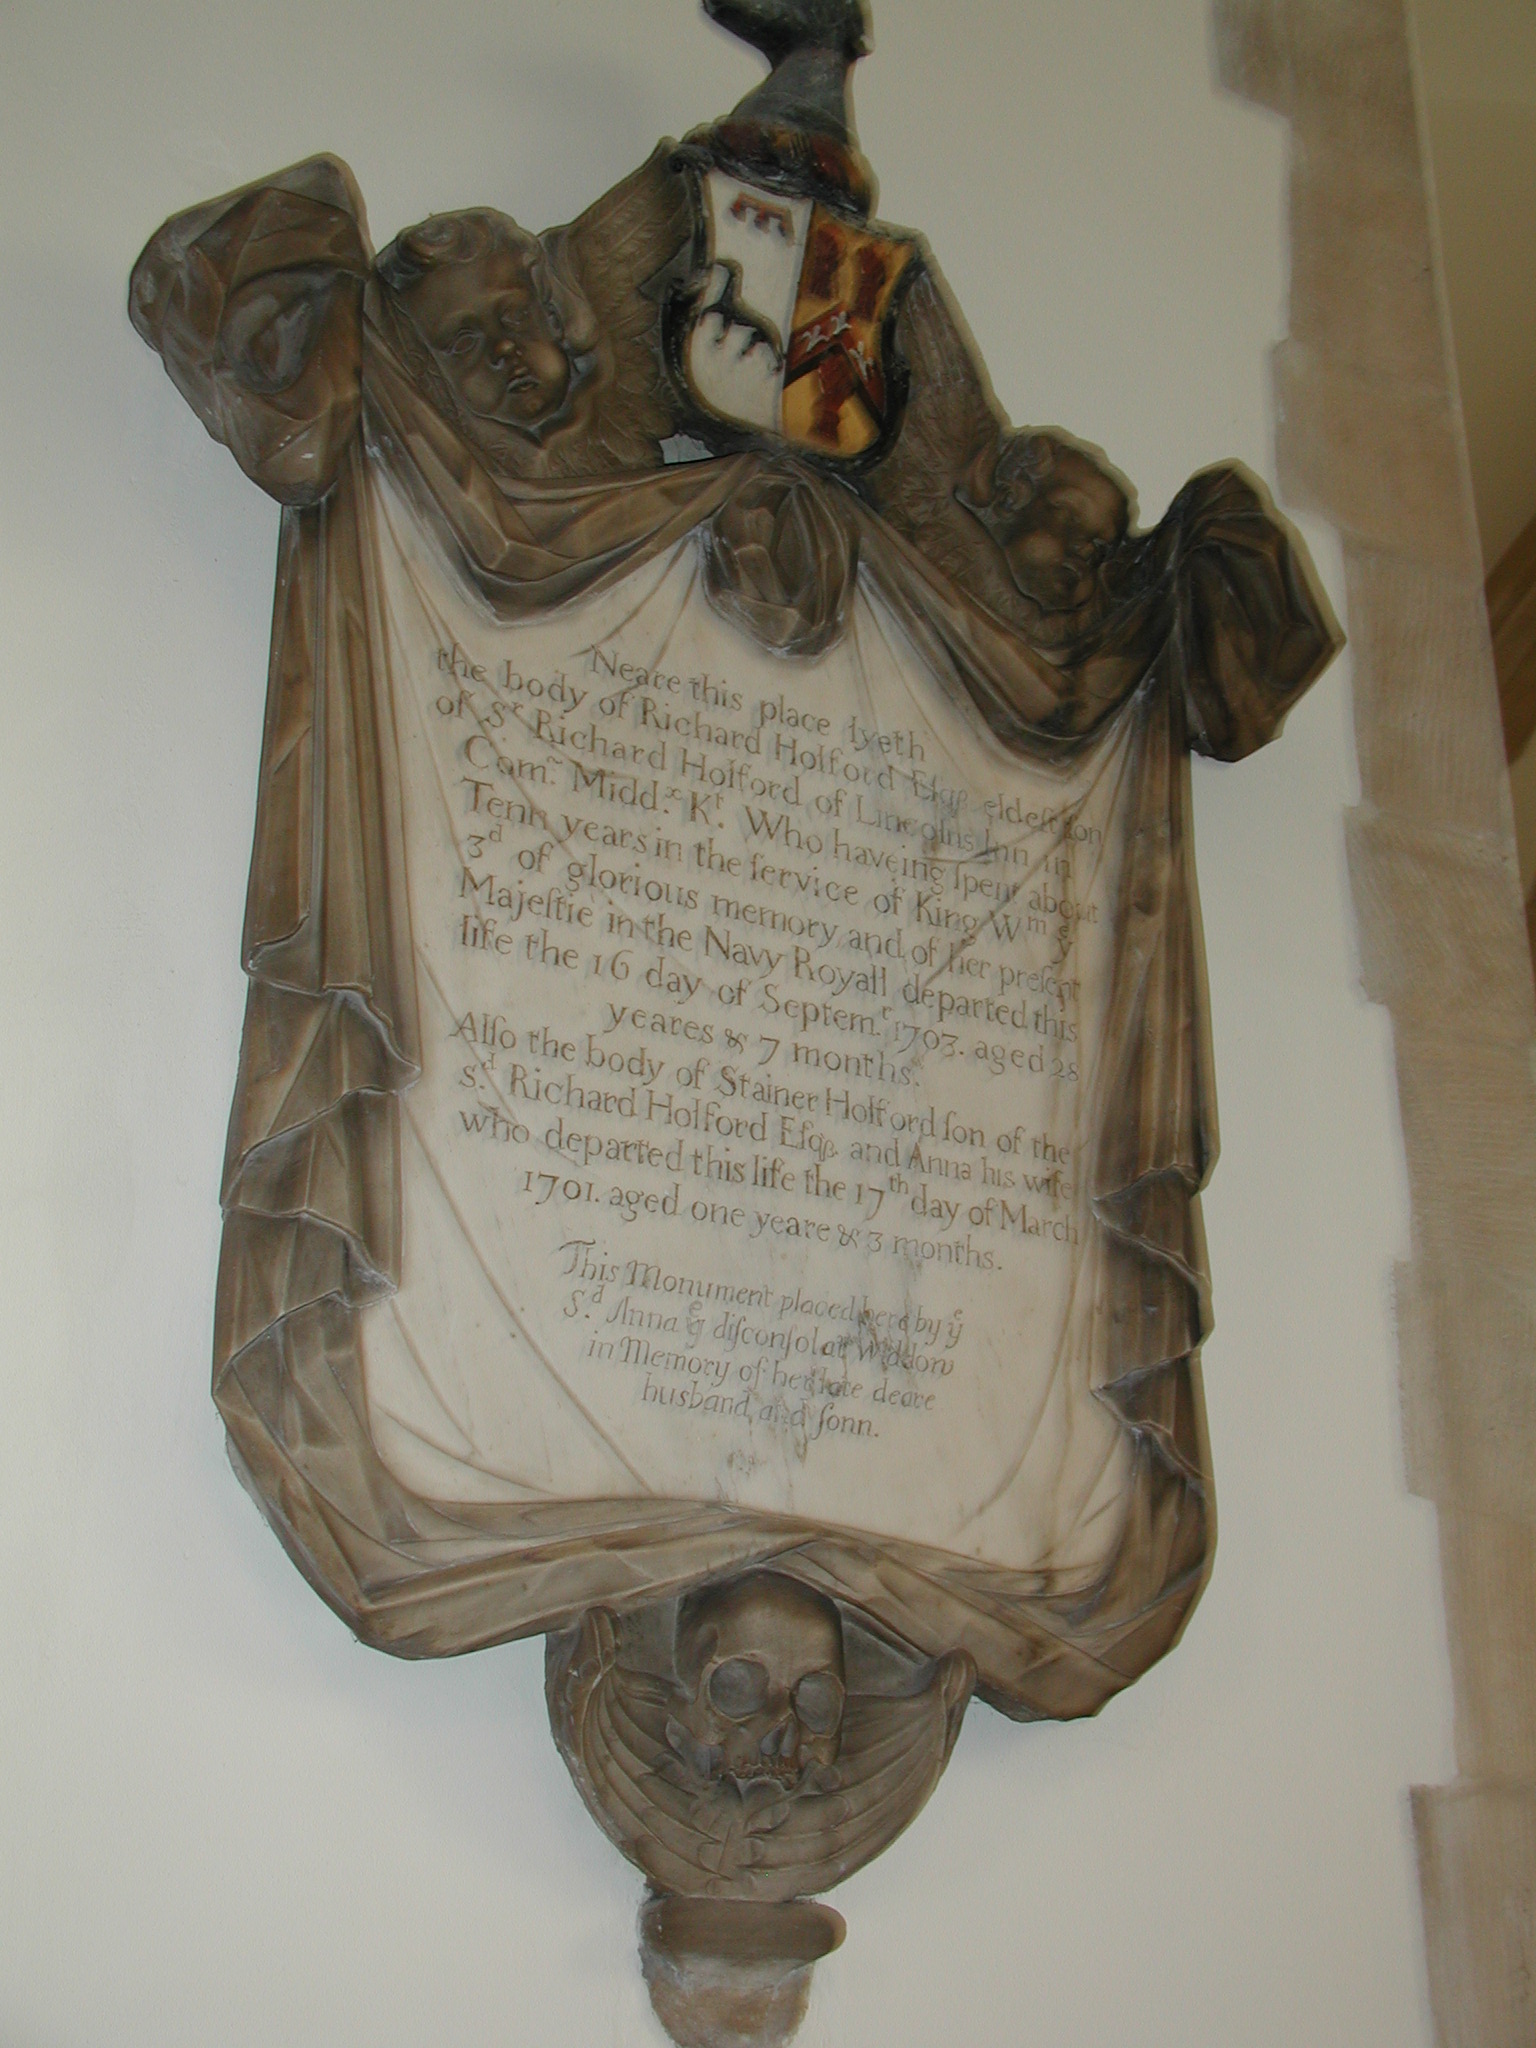 Neare this place lyeth
the body of Richard Holford Eſqꝫ eldeſt ſon
of Sr Richard Holford of Lincolns Inn in
Com~. Midd.x Kt. Who haveing ſpent about
Tenn years in the ſervice of King Wm ye
3d of glorious memory and of her preſent
Majeſtie in the Navy Royall departed this
life the 16 day of Septem.r 1703. aged 28
yeares & 7 months.
Alſo the body of Stainer Holford ſon of the
S.d Richard Holford Eſqꝫ. and Anna his wife
who departed this life the 17th day of March
1701. aged one yeare & 3 months.
This Monument placed here by ye
S.d Anna ye diſconſolate Widdow
in Memory of her late deare
husband and ſonn.